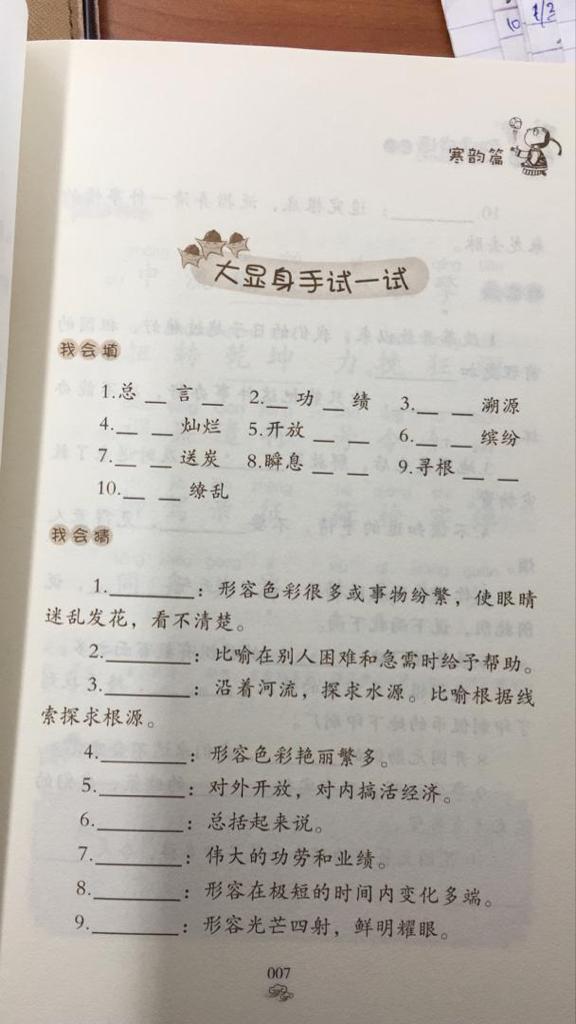 10 1/3
寒韵篇
大显身手试一试
我会填
1.总 __ 言 __ 2.__ 功 __ 绩 3.__ __ 溯源
4.__ __ 灿烂 5.开放 __ __ 6.__ __ 缤纷
7.__ __ 送炭 8.瞬息 __ __ 9.寻根 __ __
10.__ __ 缭乱
我会猜
1.________：形容色彩很多或事物纷繁，使眼睛
迷乱发花，看不清楚。
2.________：比喻在别人困难和急需时给予帮助。
3.________：沿着河流，探求水源。比喻根据线
索探求根源。
4.________：形容色彩艳丽繁多。
5.________：对外开放，对内搞活经济。
6.________：总括起来说。
7.________：伟大的功劳和业绩。
8.________：形容在极短的时间内变化多端。
9.________：形容光芒四射，鲜明耀眼。
007